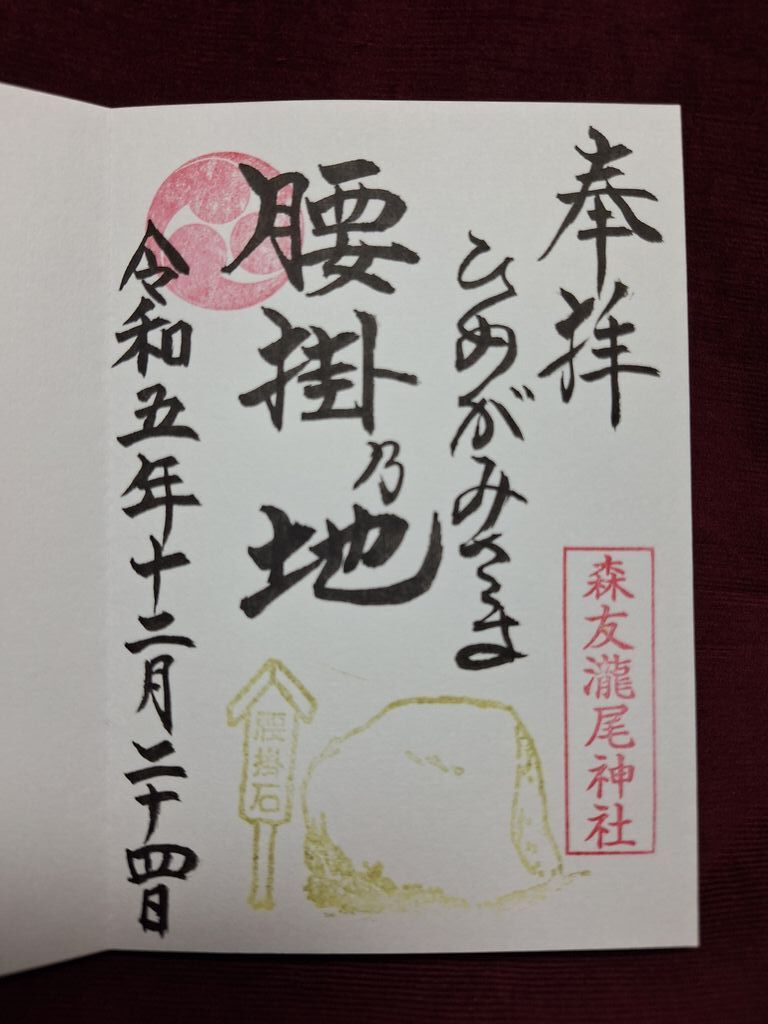 奉拝
森友瀧尾神社
ひめがみさま
腰掛乃地
腰掛石
令和五年十二月二十四日